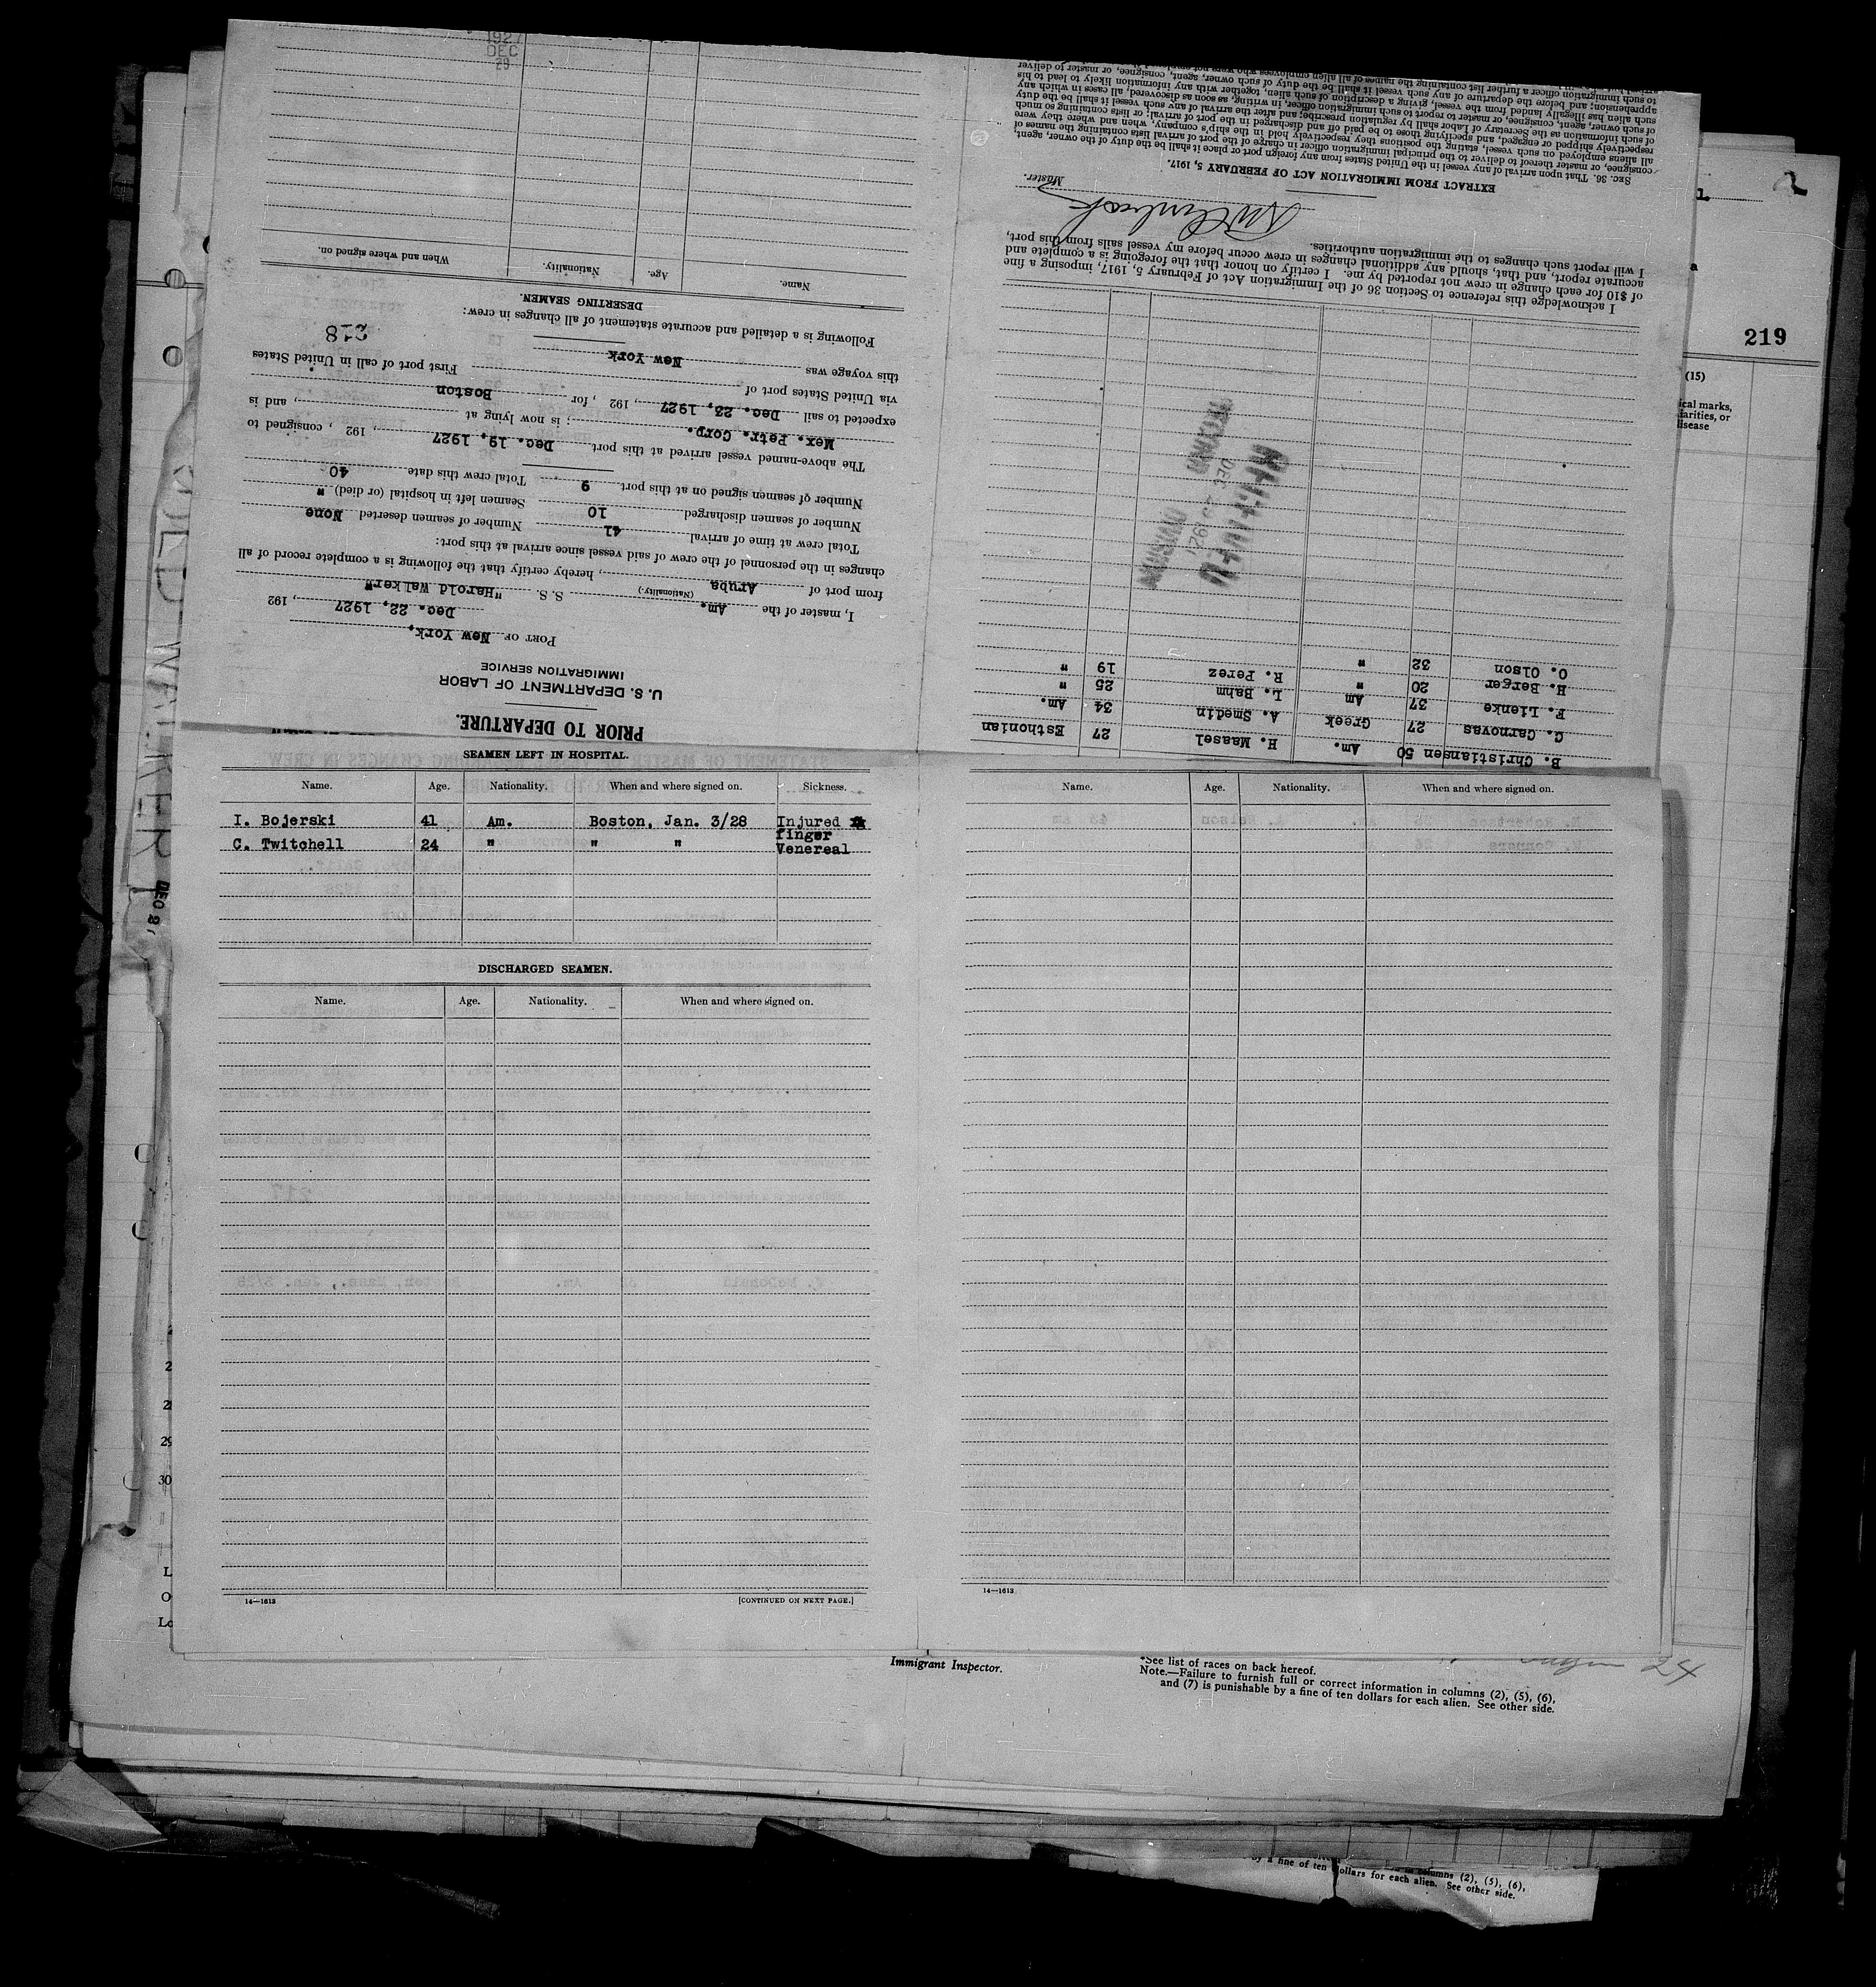 PRIOR TO DEPARTURE.
U. S. DEPARTMENT OF LABOR
IMMIGRATION SERVICE
PORT OF New York,
Dec. 22, 1927, 192
I, master of the Am. (Nationality.) S. S. "Harold Walker"
from port of Aruba, hereby certify that the following is a complete record of all
changes in the personnel of the crew of said vessel since arrival at this port:
Total crew at time of arrival 41 Number of seamen deserted None
Number of seamen discharged 10 Seamen left in hospital (or died) "
Number of seamen signed on at this port 9 Total crew this date 40
The above-named vessel arrived at this port Dec. 19, 1927, 192 , consigned to
Mex. Petr. Corp. ; is now lying at , and is
expected to sail Dec. 23, 1927, 192 , for Boston
via United States port of First port of call in United States
this voyage was New York
218
Following is a detailed and accurate statement of all changes in crew:
DESERTING SEAMEN.
Name. Age. Nationality. When and where signed on.
1927
DEC
29
B. Christiansen 50 Am. H. Maasel 27 Esthonian
C. Carnovas 27 Greek A. Smedin 34 Am.
F. Lienke 37 Am L. Bahm 25 "
H. Berger 20 " R. Perez 19 "
O. Olson 32 "
I acknowledge this reference to Section 36 of the Immigration Act of February 5, 1917, imposing a fine
of $10 for each change in crew not reported by me. I certify on honor that the foregoing is a complete and
accurate report, and that, should any additional changes in crew occur before my vessel sails from this port,
I will report such changes to the immigration authorities.
Master.
EXTRACT FROM IMMIGRATION ACT OF FEBRUARY 5, 1917.
SEC. 36. That upon arrival of any vessel in the United States from any foreign port or place it shall be the duty of the owner, agent,
consignee, or master thereof to deliver to the principal immigration officer in charge of the port of arrival lists containing the names of
all aliens employed on such vessel, stating the positions they respectively hold in the ship's company, when and where they were
respectively shipped or engaged, and specifying those to be paid off and discharged in the port of arrival; or lists containing so much
of such information as the Secretary of Labor shall by regulation prescribe; and after the arrival of any such vessel it shall be the duty
of such owner, agent, consignee, or master to report to such immigration officer, in writing, as soon as discovered, all cases in which any
such alien has illegally landed from the vessel, giving a description of such alien, together with any information likely to lead to his
apprehension; and before the departure of any such vessel it shall be the duty of such owner, agent, consignee, or master to deliver
to such immigration officer a further list containing the names of all alien employees who were not employed
219
(15)
SEAMEN LEFT IN HOSPITAL.
Name. Age. Nationality. When and where signed on. Sickness.
I. Bojerski 41 Am. Boston, Jan. 3/28 Injured
finger
C. Twitchell 24 " " " Venereal
DISCHARGED SEAMEN.
Name. Age. Nationality. When and where signed on.
14—1613 [CONTINUED ON NEXT PAGE.]
Name. Age. Nationality. When and where signed on.
14—1613
Immigrant Inspector.
*See list of races on back hereof.
Note.—Failure to furnish full or correct information in columns (2), (5), (6),
and (7) is punishable by a fine of ten dollars for each alien. See other side.
24
columns (2), (5), (6),
by a fine of ten dollars for each alien. See other side.